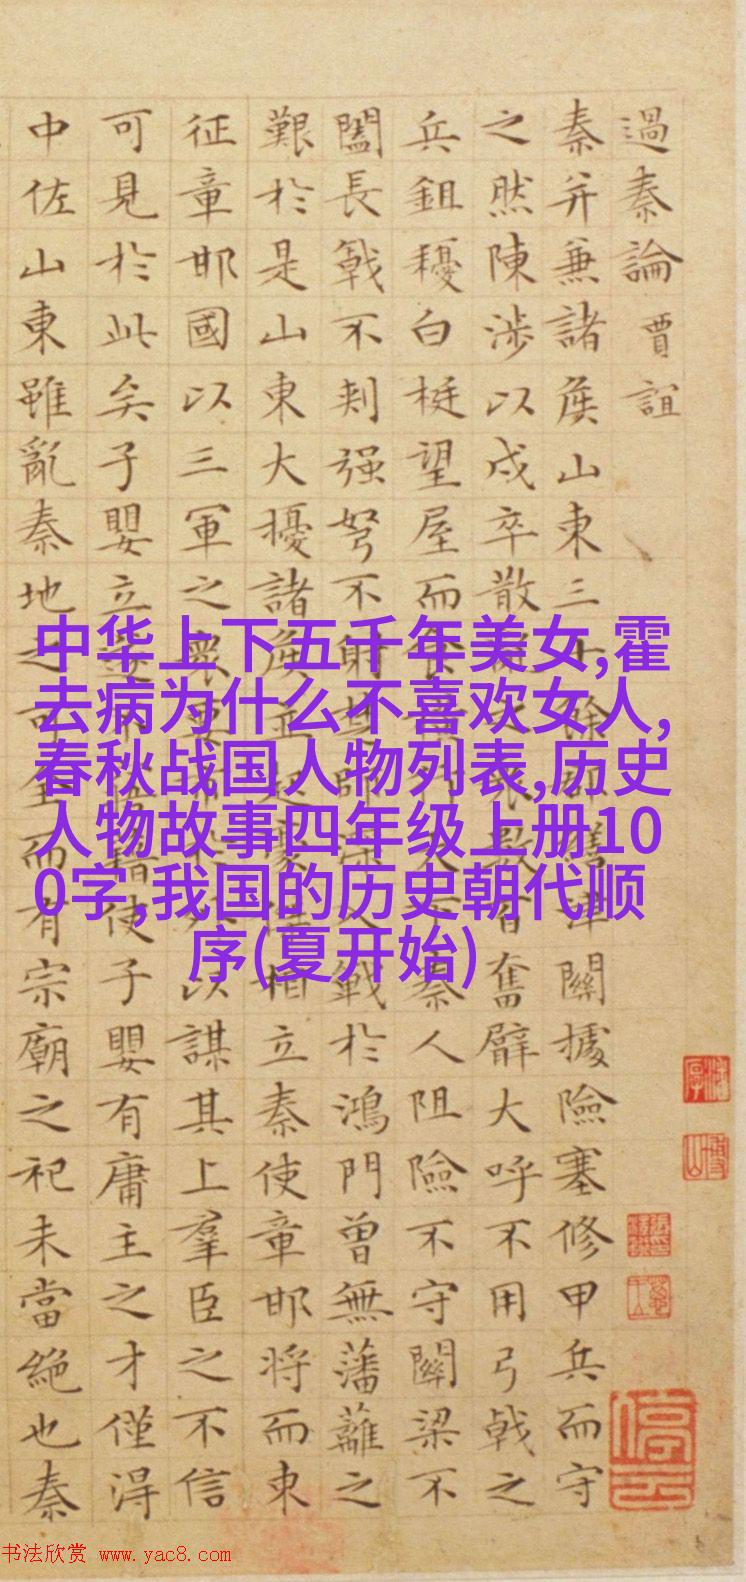 過秦論 賈誼
秦并兼諸侯山東三十餘郡繕津關據險塞修甲兵而守
之然陳涉以戍卒散亂之衆數百奮臂大呼不用弓戟之
兵鉏耰白梃望屋而食橫行天下秦人阻險不守關梁不
闔長戟不刺强弩不射楚師深入戰於鴻門曾無藩籬之
艱於是山東大擾諸侯並起豪俊相立秦使章邯將而東
征章邯國以三軍之衆要市於外以謀其上羣臣之不信
可見於此矣子嬰立遂不悟藉使子嬰有庸主之才僅得
中佐山東雖亂秦地之可全而有宗廟之祀未當絕也秦
中华上下五千年美女,霍
去病为什么不喜欢女人,
春秋战国人物列表,历史
人物故事四年级上册10
0字,我国的历史朝代顺
序(夏开始)
停雲
书法欣赏 www.yac8.com